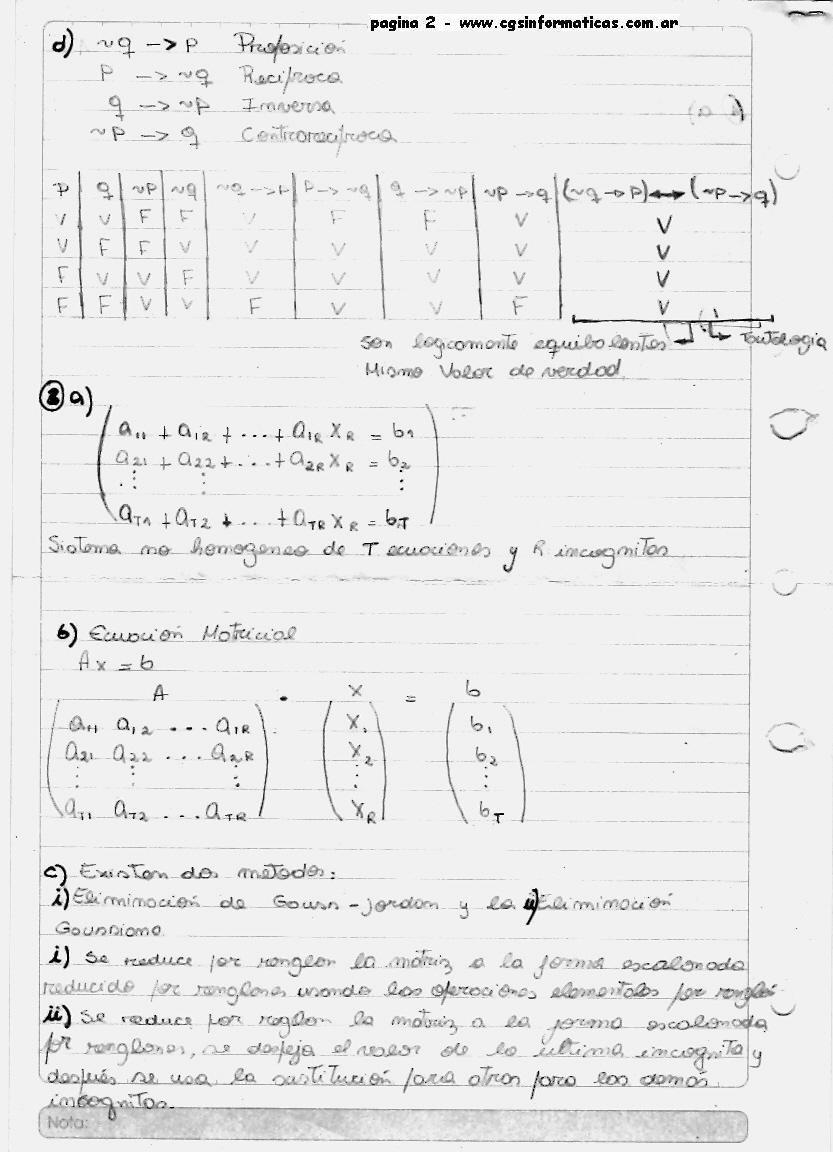 pagina 2 - www.cgsinformaticas.com.ar
d) ~q -> p Proposición
p -> ~q Recíproca
q -> ~p Inversa
~p -> q Contrarecíproca
p | q | ~p | ~q | ~q -> p | p -> ~q | q -> ~p | ~p -> q | (~q -> p) <-> (~p -> q)
V | V | F | F | V | F | F | V | V
V | F | F | V | V | V | V | V | V
F | V | V | F | V | V | V | V | V
F | F | V | V | F | V | V | F | V
Son logicamente equibalentes Tautologia
Mismo Valor de verdad
2 a)
a11 + a12 + ... + a1R XR = b1
a21 + a22 + ... + a2R XR = b2
⋮ ⋮ ⋮
aT1 + aT2 + ... + aTR XR = bT
Sistema no homogeneo de T ecuaciones y R incognitas
b) Ecuación Matricial
Ax = b
A . x = b
a11 a12 ... a1R x1 b1
a21 a22 ... a2R x2 b2
⋮ ⋮ ⋮ ⋮ ⋮
aT1 aT2 ... aTR xR bT
c) Existen dos metodos:
i) Eliminación de Gauss-jordan y la ii) Eliminación
Gaussiana
i) Se reduce por renglon la matriz a la forma escalonada
reducida por renglones usando las operaciones elementales por renglón
ii) Se reduce por roglon la matriz a la forma escalonada
por renglones, se despeja el valor de la ultima incognita y
después se usa la sustitución para atras para las demás
incognitas.
Nota: